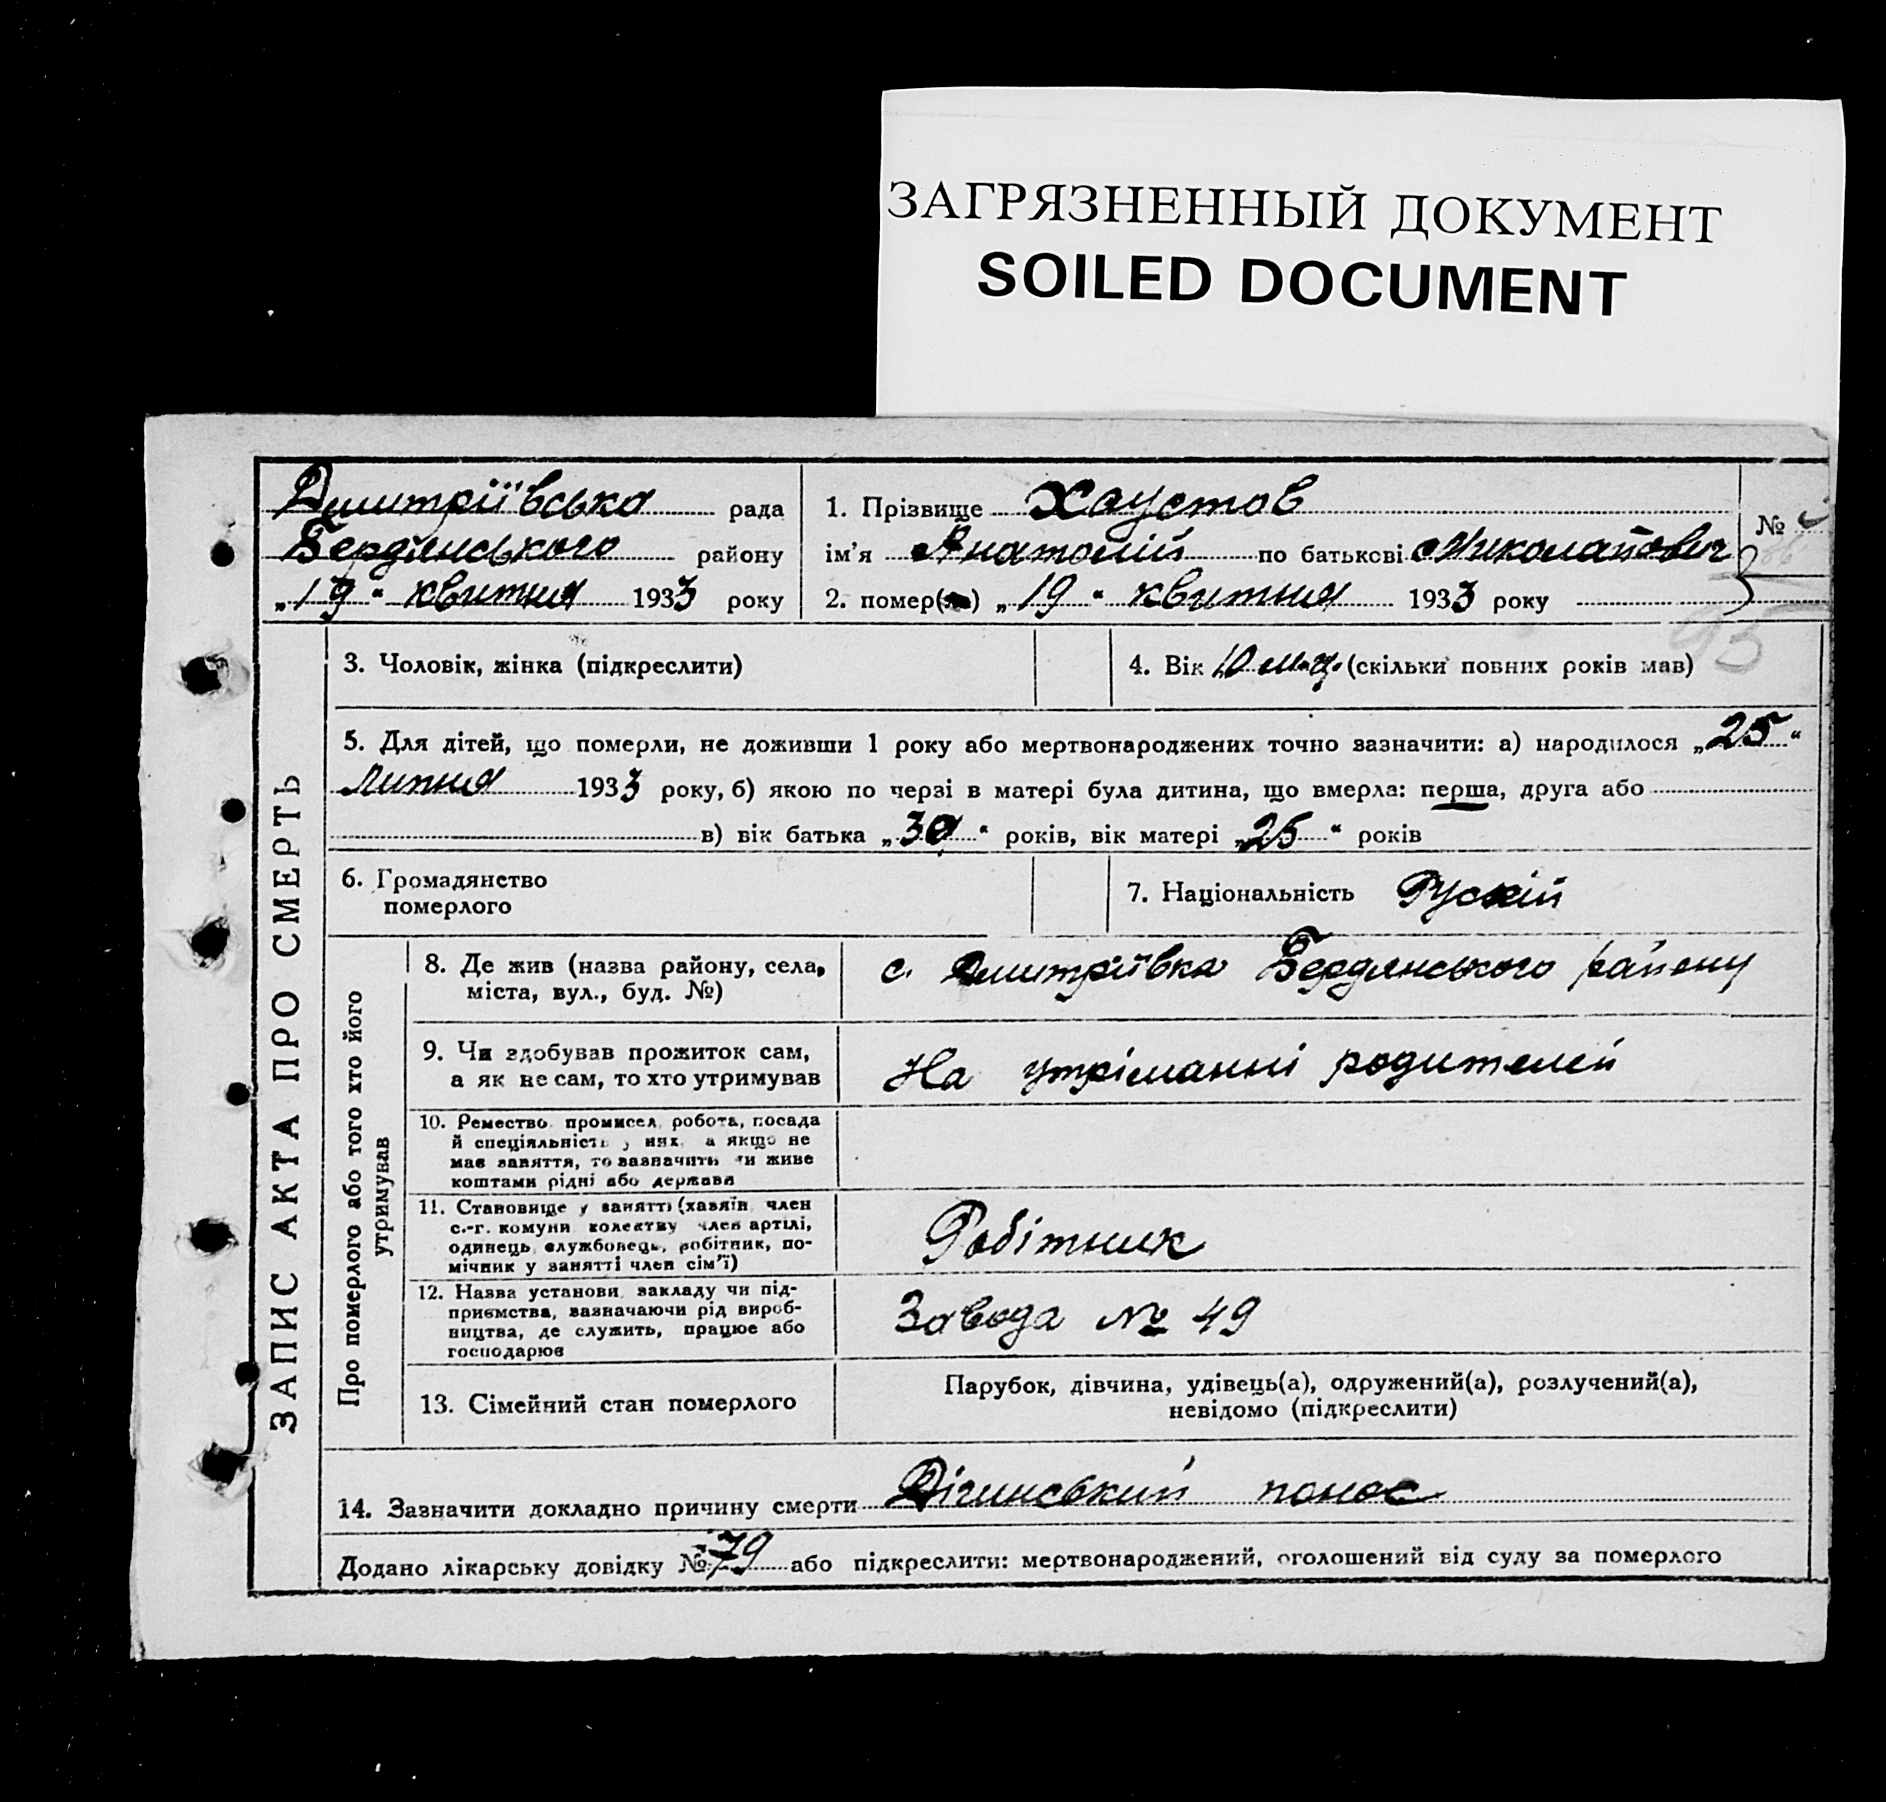 ЗАГРЯЗНЕННЫЙ ДОКУМЕНТ
SOILED DOCUMENT
Дмитріївська рада
Бердянського району
„19“ квитня 1933 року
1. Прізвище Хаустов
ім’я Анатолій по батькові Николайович
2. помер(ла) „19“ квитня 1933 року
№
95
ЗАПИС АКТА ПРО СМЕРТЬ
3. Чоловік, жінка (підкреслити)
4. Вік 10 м-ц. (скільки повних років мав)
5. Для дітей, що померли, не доживши 1 року або мертвонароджених точно зазначити: а) народилося „25“
Липня 1933 року, б) якою по черзі в матері була дитина, що вмерла: перша, друга або
в) вік батька „30“ років, вік матері „25“ років
6. Громадянство
померлого
7. Національність Рускій
Про померлого або того хто його
утримував
8. Де жив (назва району, села,
міста, вул., буд. №)
с. Дмитріївка Бердянського району
9. Чи здобував прожиток сам,
а як не сам, то хто утримував
На утріманні родителей
10. Ремество промисел, робота, посада
й спеціяльність у них, а якщо не
має заняття, то зазначить чи живе
коштами рідні або держави
11. Становище у занятті (хазяїн, член
с.-г. комуни колективу член артілі,
одинець, службовець, робітник, по-
мічник у занятті член сім’ї)
Робітник
12. Назва установи, закладу чи під-
приємства, зазначаючи рід вироб-
ництва, де служить, працює або
господарює
Завода № 49
13. Сімейний стан померлого
Парубок, дівчина, удівець(а), одружений(а), розлучений(а),
невідомо (підкреслити)
14. Зазначити докладно причину смерти Дігинський понос
Додано лікарську довідку № 79 або підкреслити: мертвонароджений, оголошений від суду за померлого